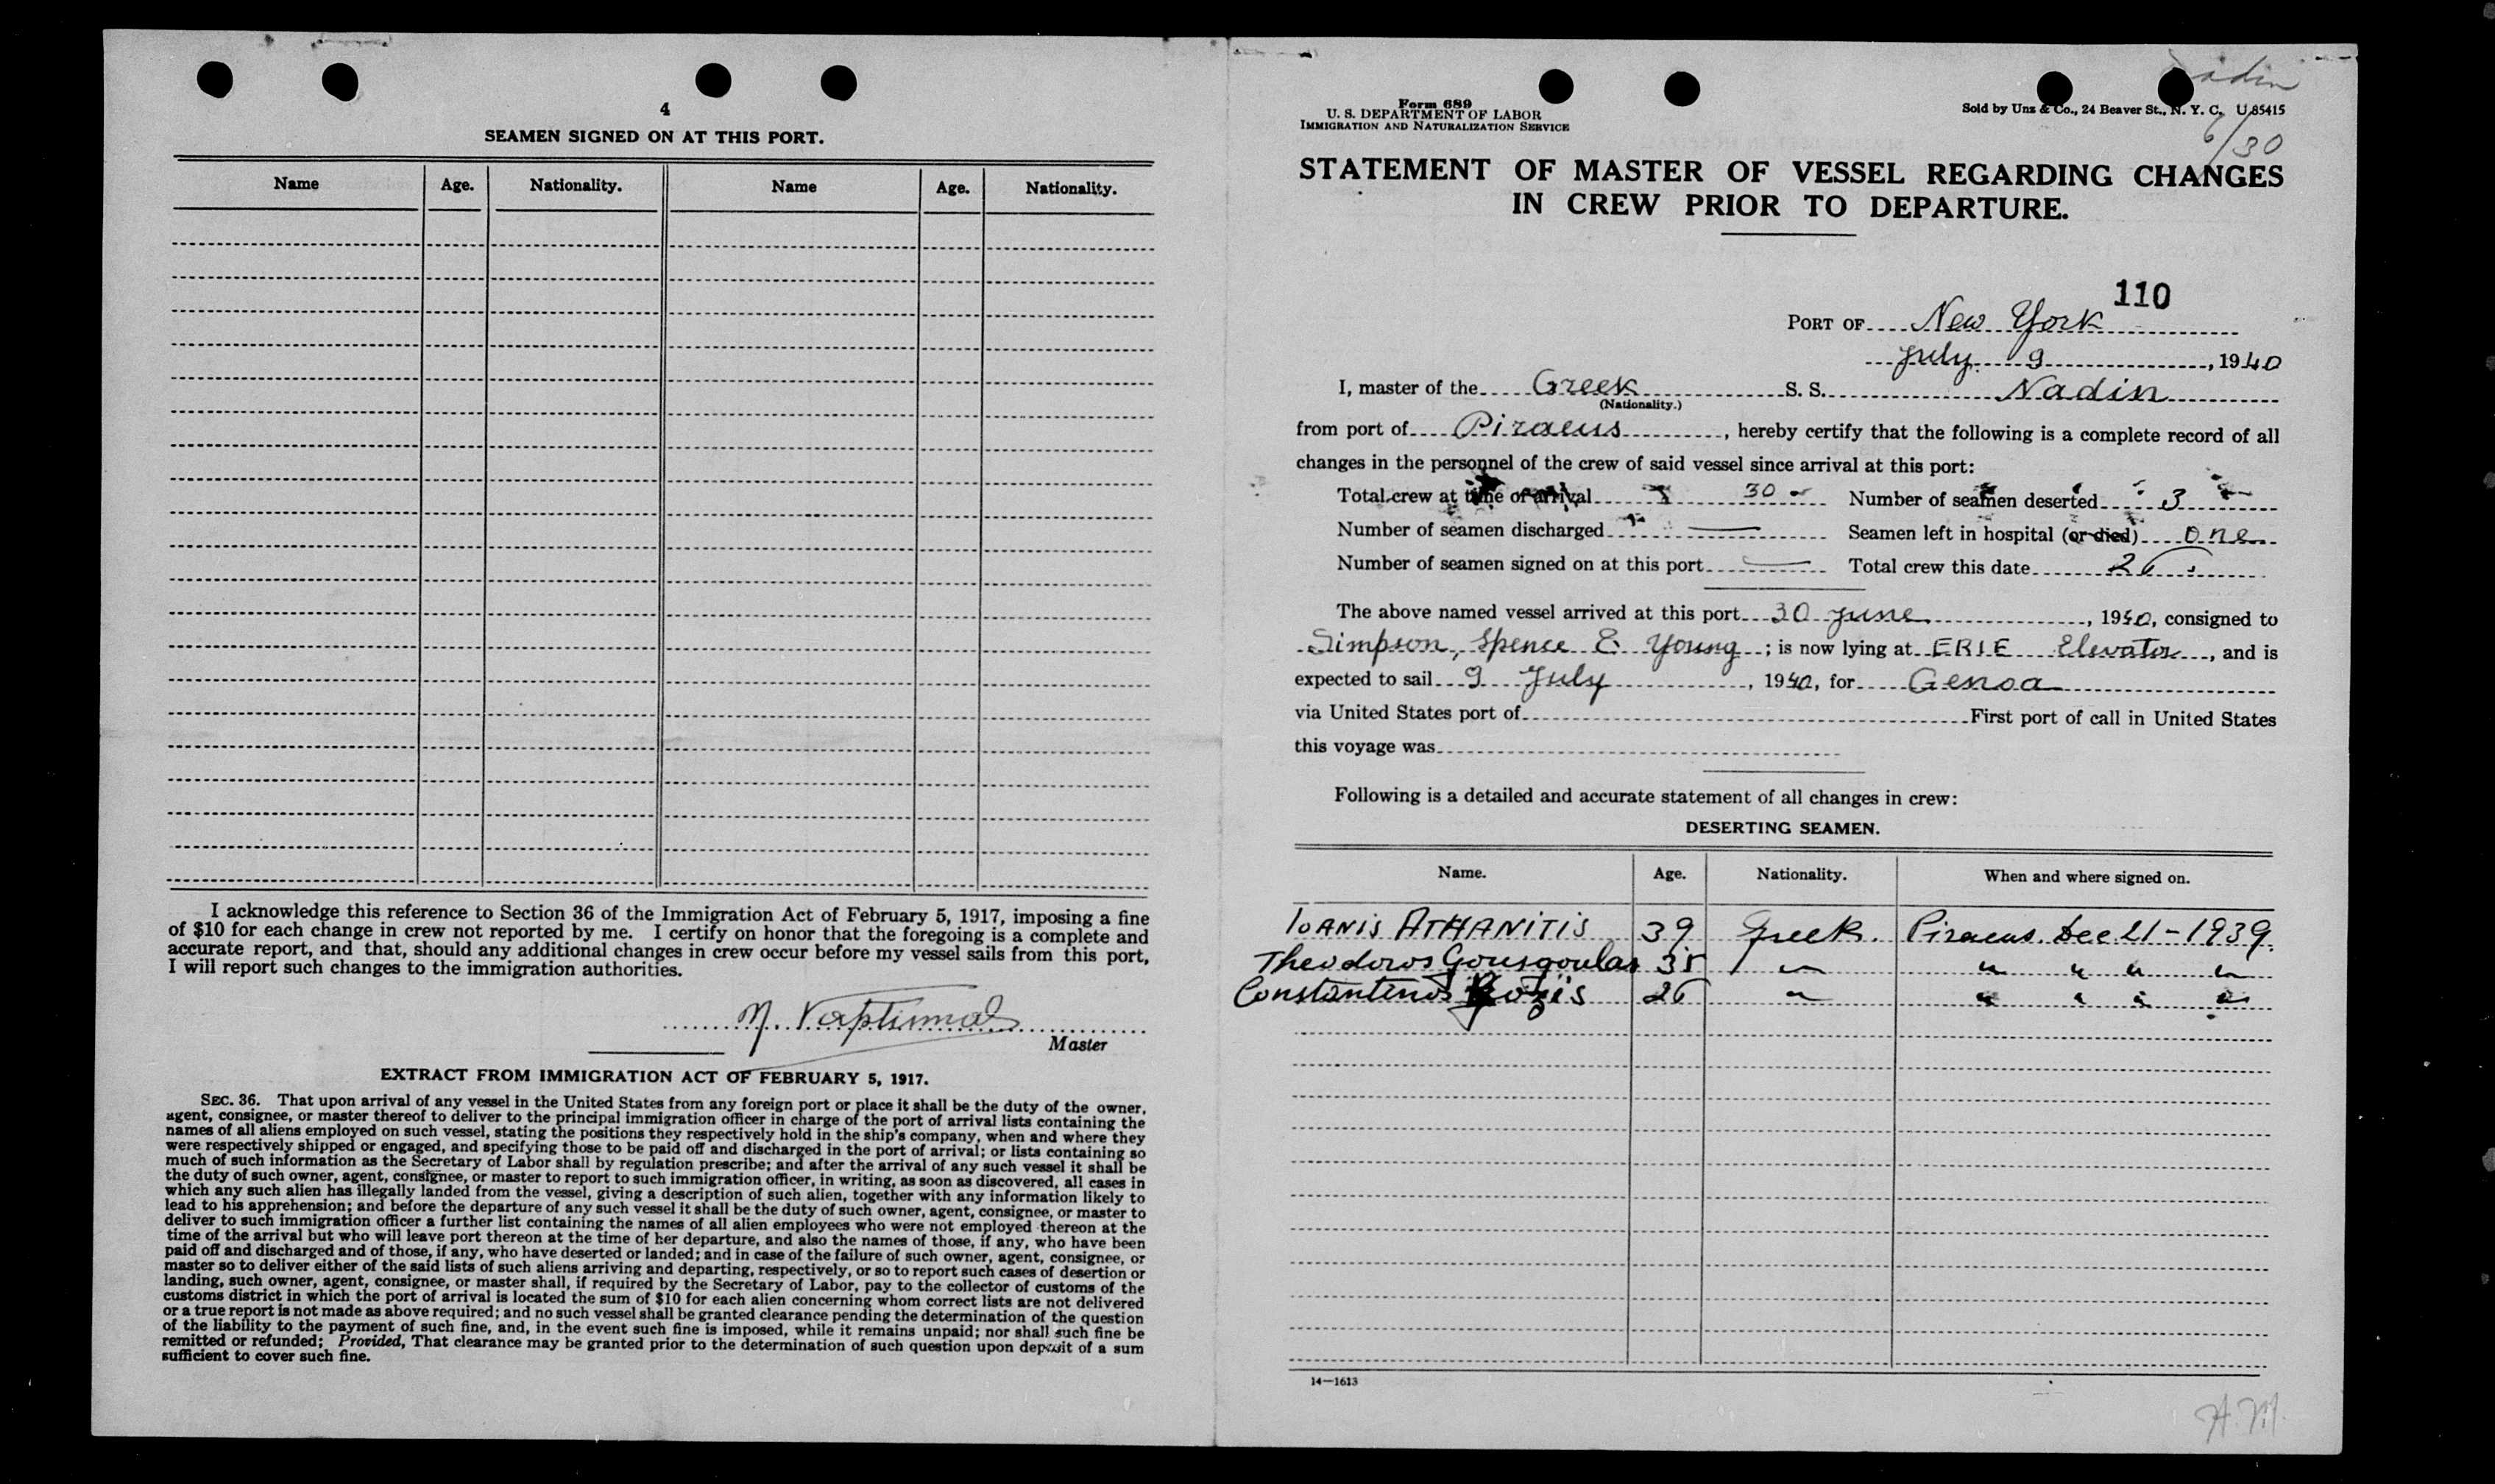 4
SEAMEN SIGNED ON AT THIS PORT.
Name Age. Nationality. Name Age. Nationality.
I acknowledge this reference to Section 36 of the Immigration Act of February 5, 1917, imposing a fine
of $10 for each change in crew not reported by me. I certify on honor that the foregoing is a complete and
accurate report, and that, should any additional changes in crew occur before my vessel sails from this port,
I will report such changes to the immigration authorities.
Master
EXTRACT FROM IMMIGRATION ACT OF FEBRUARY 5, 1917.
SEC. 36. That upon arrival of any vessel in the United States from any foreign port or place it shall be the duty of the owner,
agent, consignee, or master thereof to deliver to the principal immigration officer in charge of the port of arrival lists containing the
names of all aliens employed on such vessel, stating the positions they respectively hold in the ship's company, when and where they
were respectively shipped or engaged, and specifying those to be paid off and discharged in the port of arrival; or lists containing so
much of such information as the Secretary of Labor shall by regulation prescribe; and after the arrival of any such vessel it shall be
the duty of such owner, agent, consignee, or master to report to such immigration officer, in writing, as soon as discovered, all cases in
which any such alien has illegally landed from the vessel, giving a description of such alien, together with any information likely to
lead to his apprehension; and before the departure of any such vessel it shall be the duty of such owner, agent, consignee, or master to
deliver to such immigration officer a further list containing the names of all alien employees who were not employed thereon at the
time of the arrival but who will leave port thereon at the time of her departure, and also the names of those, if any, who have been
paid off and discharged and of those, if any, who have deserted or landed; and in case of the failure of such owner, agent, consignee, or
master so to deliver either of the said lists of such aliens arriving and departing, respectively, or so to report such cases of desertion or
landing, such owner, agent, consignee, or master shall, if required by the Secretary of Labor, pay to the collector of customs of the
customs district in which the port of arrival is located the sum of $10 for each alien concerning whom correct lists are not delivered
or a true report is not made as above required; and no such vessel shall be granted clearance pending the determination of the question
of the liability to the payment of such fine, and, in the event such fine is imposed, while it remains unpaid; nor shall such fine be
remitted or refunded; Provided, That clearance may be granted prior to the determination of such question upon deposit of a sum
sufficient to cover such fine.
Form 689
U. S. DEPARTMENT OF LABOR
IMMIGRATION AND NATURALIZATION SERVICE
Sold by Unz & Co., 24 Beaver St., N. Y. C. U 85415
6/30
STATEMENT OF MASTER OF VESSEL REGARDING CHANGES
IN CREW PRIOR TO DEPARTURE.
110
PORT OF New York
July 9, 1940
I, master of the Greek S. S. Nadin
(Nationality.)
from port of Piraeus, hereby certify that the following is a complete record of all
changes in the personnel of the crew of said vessel since arrival at this port:
Total crew at time of arrival 30 Number of seamen deserted 3
Number of seamen discharged — Seamen left in hospital (or died) one
Number of seamen signed on at this port — Total crew this date 26
The above named vessel arrived at this port 30 June, 1940, consigned to
Simpson, Spence & Young; is now lying at ERIE Elevator, and is
expected to sail 9 July, 1940, for Genoa
via United States port of First port of call in United States
this voyage was
Following is a detailed and accurate statement of all changes in crew:
DESERTING SEAMEN.
Name. Age. Nationality. When and where signed on.
IOANIS ATHANITIS 39 Greek. Piraeus. Dec 21-1939.
Theodoros Gousgoulas 35 " " " " "
Constantinos 26 " " " " "
14—1613
H.M.